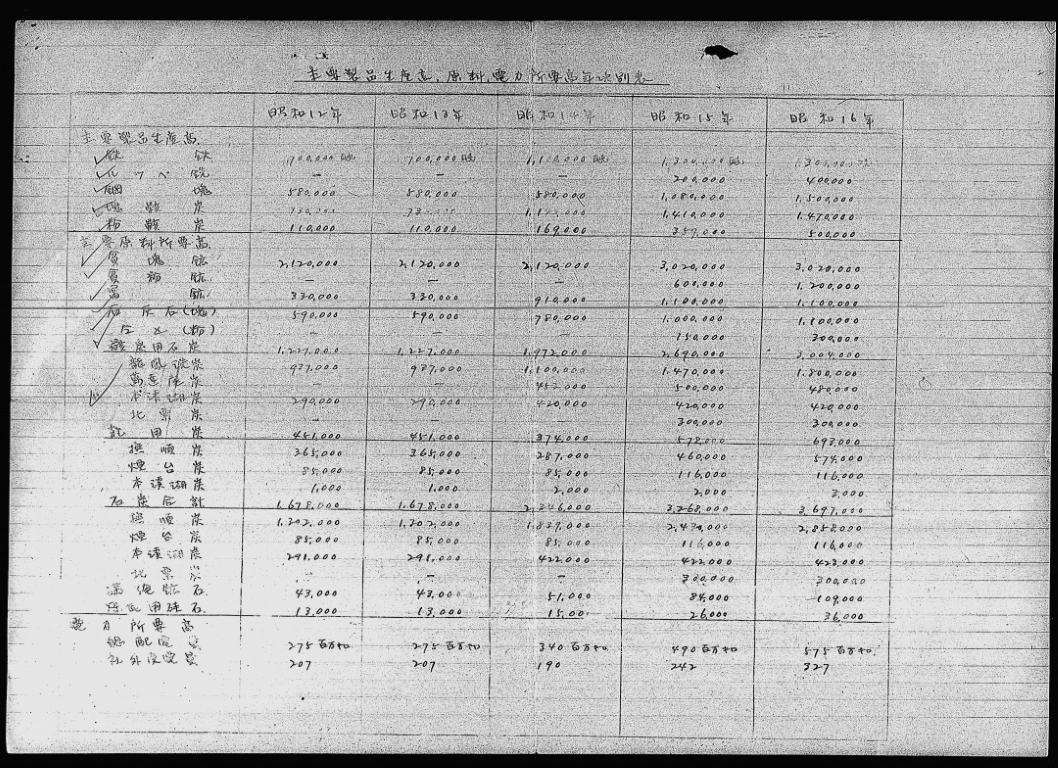 主要製品生産高、原料、電力所要高年次別表
昭和12年 昭和13年 昭和14年 昭和15年 昭和16年
主要製品生産高
銑 鉄 700,000瓲 700,000瓲 1,100,000瓲 1,300,000瓲 1,300,000瓲
ルツペ － － － 200,000 400,000
鋼 塊 580,000 580,000 580,000 1,080,000 1,500,000
塊骸炭 1,410,000 1,470,000
粉骸炭 110,000 110,000 169,000 357,000 500,000
主要原料所要高
貧塊鉱 2,120,000 2,120,000 2,120,000 3,020,000 3,020,000
貧粉鉱 － － － 600,000 1,200,000
富 鉱 330,000 330,000 910,000 1,100,000 1,100,000
石灰石(塊) 590,000 590,000 780,000 1,000,000 1,100,000
仝 上(粉) － － － 150,000 300,000
骸炭用石炭 1,227,000 1,227,000 1,972,000 2,690,000 3,004,000
龍鳳炭 937,000 937,000 1,100,000 1,470,000 1,800,000
炭 － － 452,000 500,000 480,000
本渓湖炭 290,000 290,000 420,000 420,000 420,000
北票炭 － － 300,000 300,000
用炭 451,000 451,000 374,000 578,000 693,000
撫順炭 365,000 365,000 287,000 460,000 574,000
煙台炭 85,000 85,000 85,000 116,000 116,000
本渓湖炭 1,000 1,000 2,000 2,000 3,000
石炭合計 1,678,000 1,678,000 2,346,000 3,268,000 3,697,000
撫順炭 1,302,000 1,302,000 1,839,000 2,430,000 2,858,000
煙台炭 85,000 85,000 85,000 116,000 116,000
本渓湖炭 291,000 291,000 422,000 422,000 423,000
北票炭 － － 300,000 300,000
満俺鉱石 43,000 43,000 51,000 84,000 109,000
用硅石 13,000 13,000 15,00 26,000 36,000
電力所要高
総配電量 275百万キロ 275百万キロ 340百万キロ 490百万キロ 575百万キロ
社外受電量 207 207 190 242 327